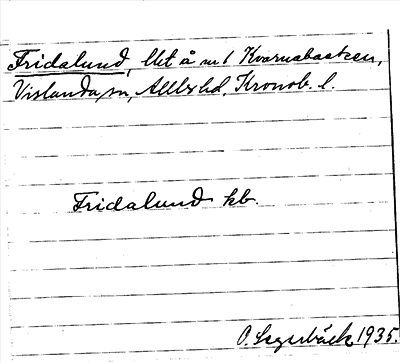 Fridalund, lht å nr 1 Kvarnabacken,
Vislanda sn, Allbo hd, Kronob. l.
Fridalund kb.
O. Segerbäck 1935.